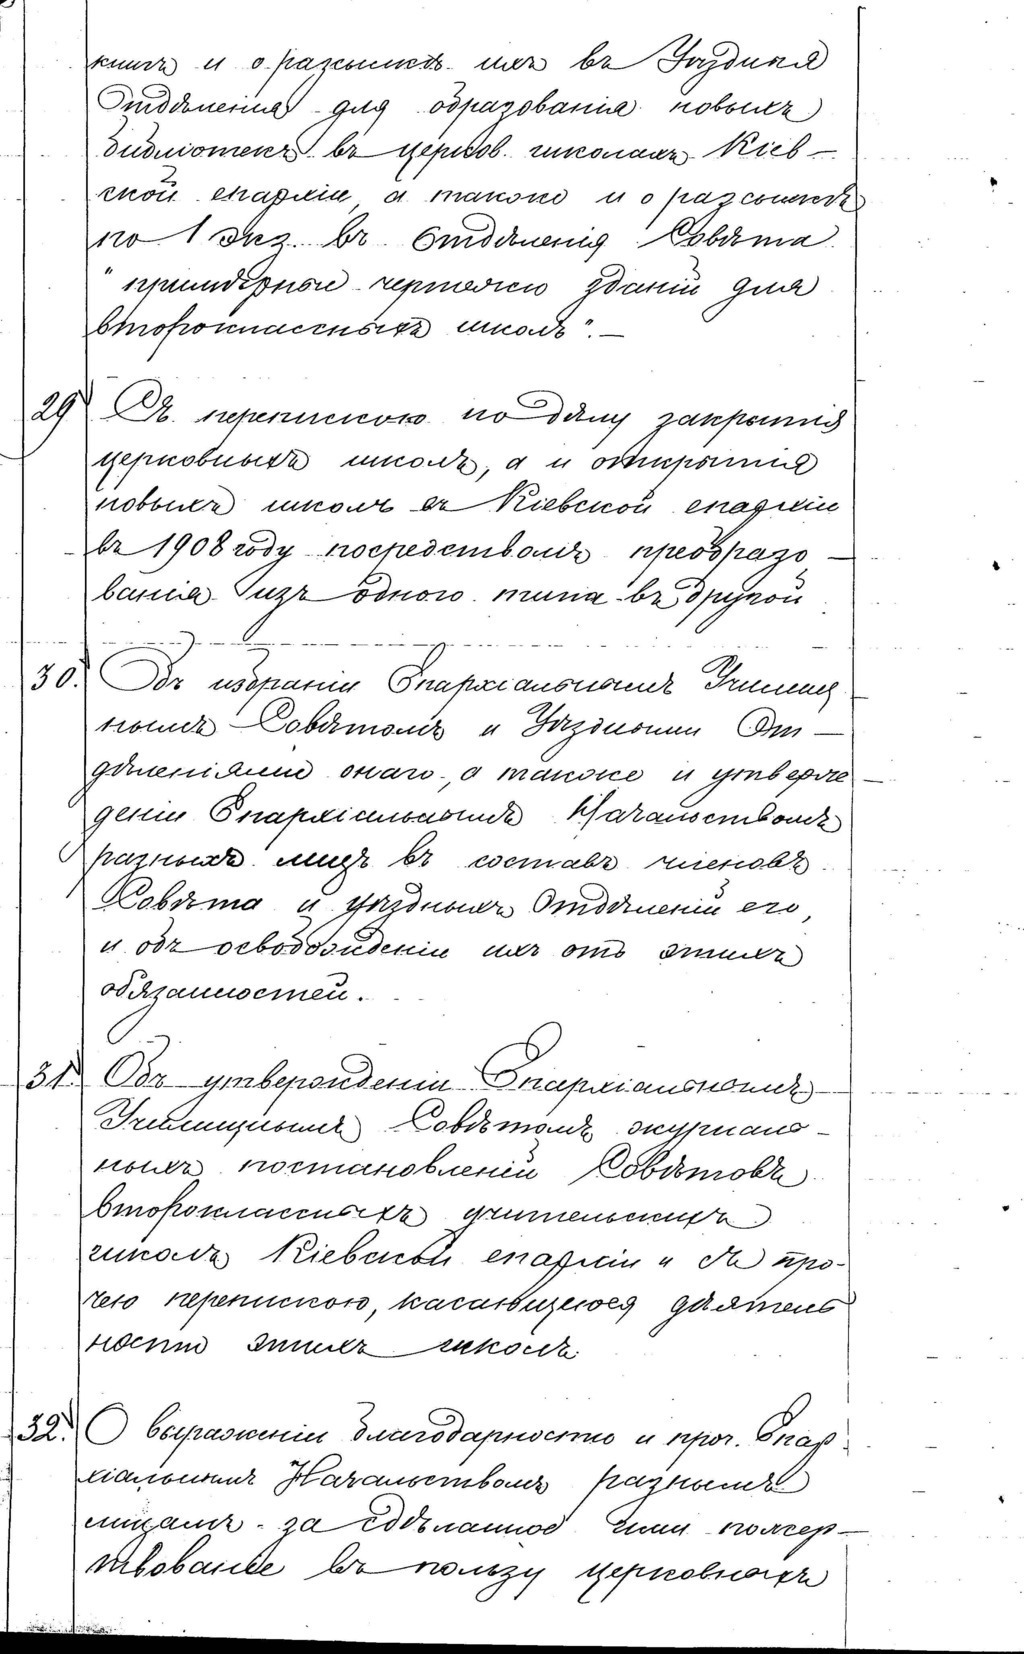 книгъ и о разсылкѣ ихъ въ Уѣздныя
Отдѣленія для образованія новыхъ
библіотекъ въ церков. школахъ Кіев-
ской епархіи, а также и о разсылкѣ
по 1 экз. въ Отдѣленія Совѣта
"примѣрные чертежи зданій для
второклассныхъ школъ".—
29 Съ перепискою по дѣлу закрытія
церковныхъ школъ, а и открытія
новыхъ школъ въ Кіевской епархіи
въ 1908 году посредствомъ преобразо-
ванія изъ одного типа въ другой
30. Объ избраніи Епархіальнымъ Училищ
нымъ Совѣтомъ и Уѣздными От-
дѣленіями онаго, а также и утверж
деніи Епархіальнымъ Начальствомъ
разныхъ лицъ въ составъ членовъ
Совѣта и уѣздныхъ Отдѣленій его,
и объ освобожденіи ихъ отъ этихъ
обязанностей.
31. Объ утвержденіи Епархіальнымъ
Училищнымъ Совѣтомъ журналь-
ныхъ постановленій Совѣтовъ
второклассныхъ учительскихъ
школъ Кіевской епархіи и съ про-
чею перепискою, касающеюся дѣятель
ности этихъ школъ.
32. О выраженіи благодарностью и проч. Епар
хіальнымъ Начальствомъ разнымъ
лицамъ за сдѣланное ими пожер-
твованіе въ пользу церковныхъ